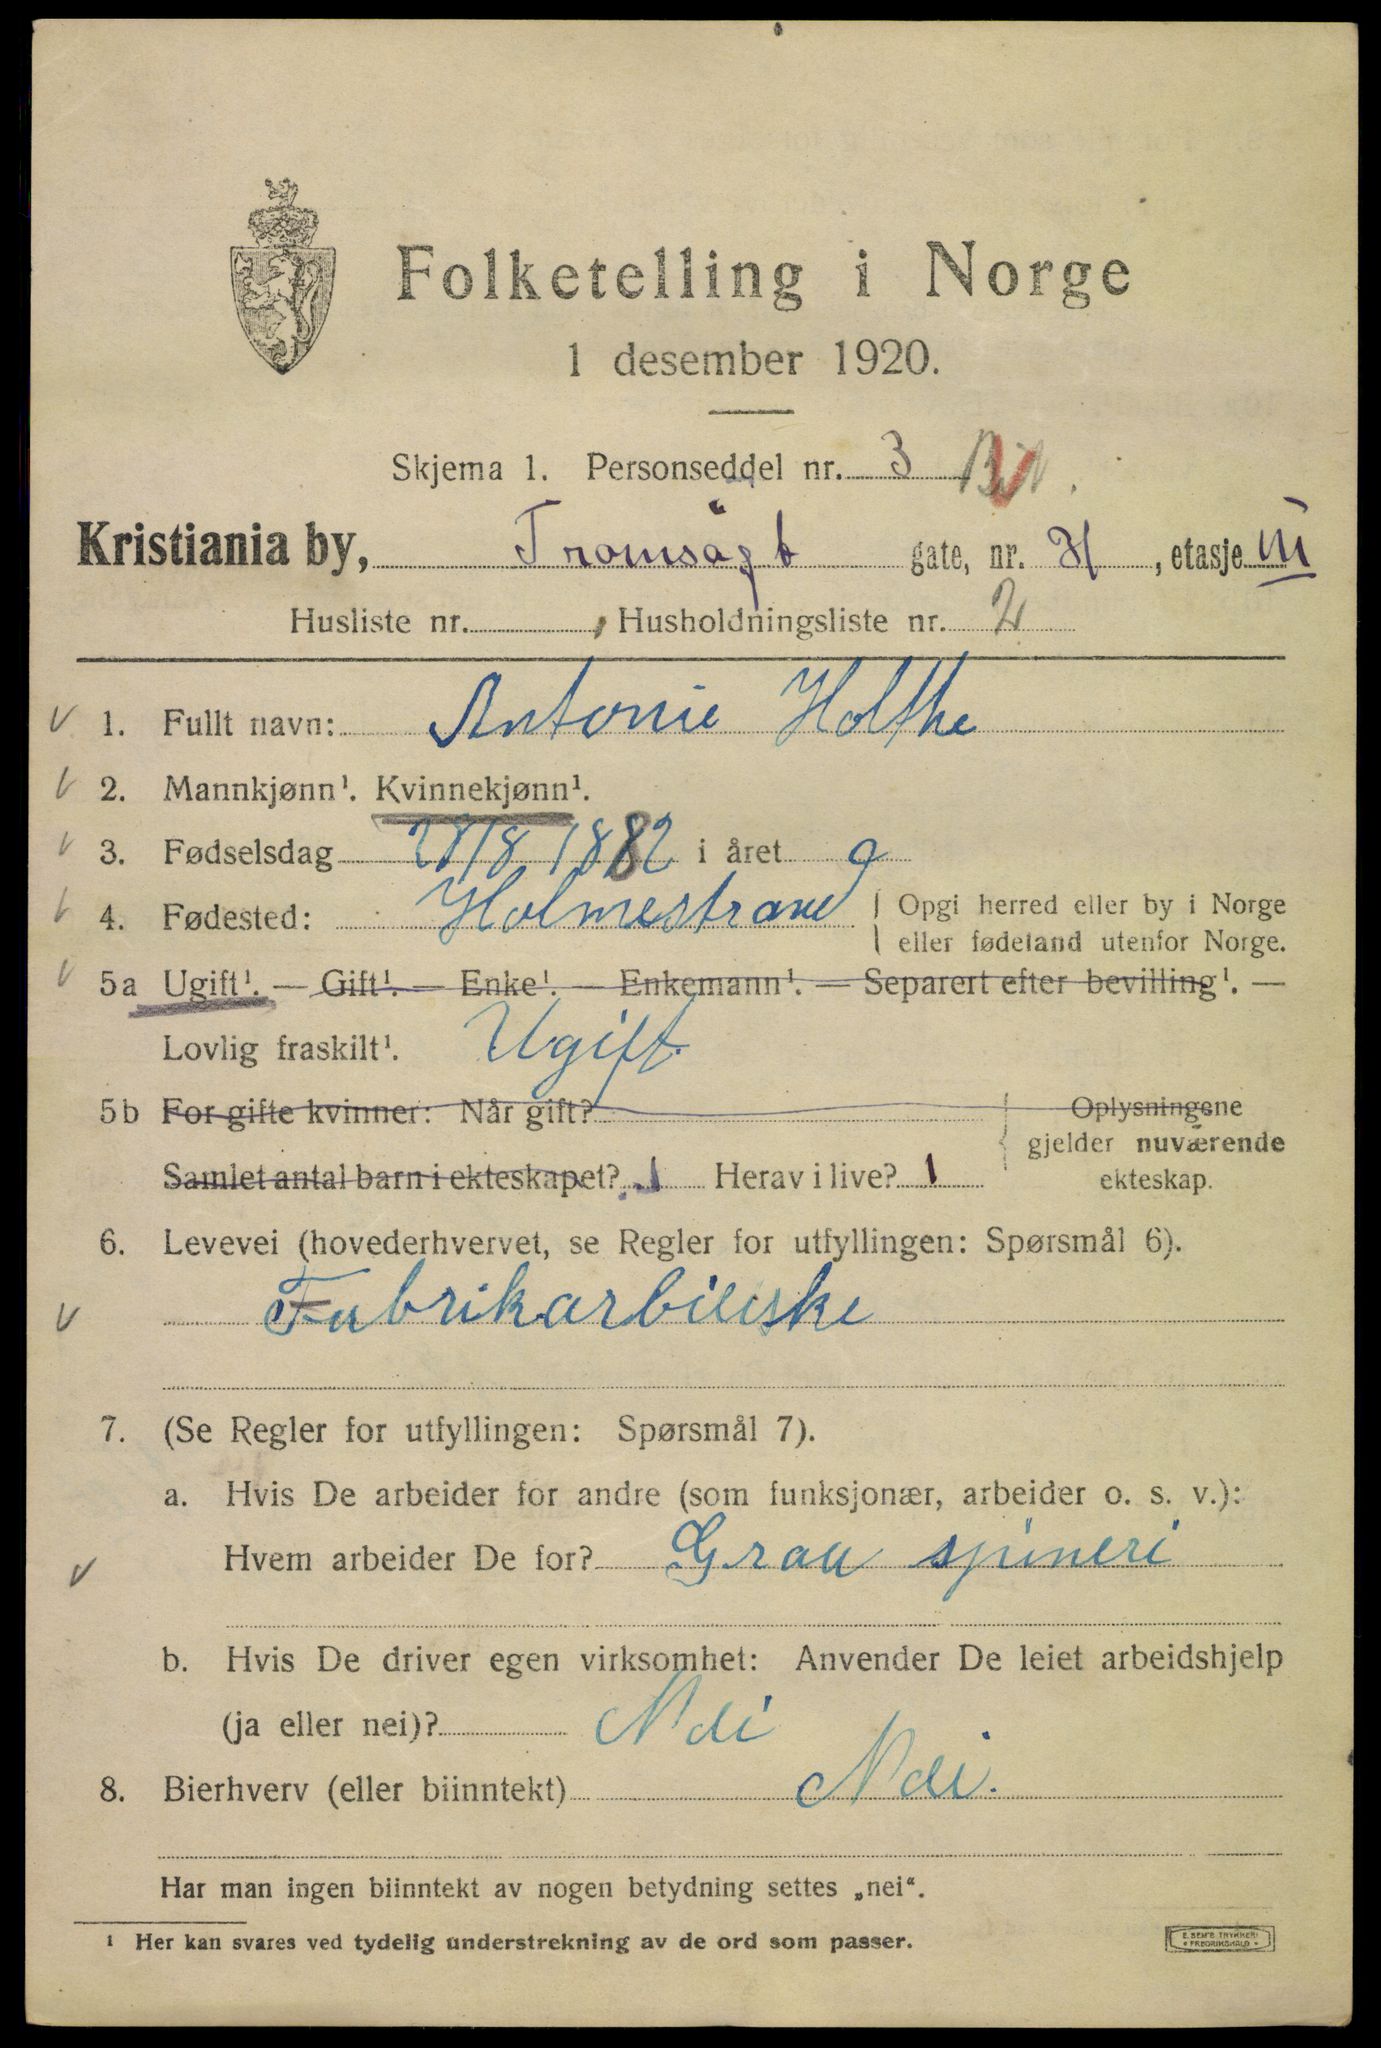 Folketelling i Norge
1 desember 1920.
Skjema 1. Personseddel nr. 3
Kristiania by, Tromsøgt gate, nr. , etasje III
Husliste nr. , Husholdningsliste nr. 2
1. Fullt navn: Antonie Holthe
2. Mannkjønn¹. Kvinnekjønn¹.
3. Fødselsdag 28/8 1882 i året
4. Fødested: Holmestrand { Opgi herred eller by i Norge
eller fødeland utenfor Norge.
5a Ugift¹. — Gift¹. — Enke¹. — Enkemann¹. — Separert efter bevilling¹. —
Lovlig fraskilt¹. Ugift.
5b For gifte kvinner: Når gift? { Oplysningene
gjelder nuværende
Samlet antal barn i ekteskapet? 1 Herav i live? 1 ekteskap.
6. Levevei (hovederhvervet, se Regler for utfyllingen: Spørsmål 6).
Fabrikarbieiske
7. (Se Regler for utfyllingen: Spørsmål 7).
a. Hvis De arbeider for andre (som funksjonær, arbeider o. s. v.):
Hvem arbeider De for? Grau spineri
b. Hvis De driver egen virksomhet: Anvender De leiet arbeidshjelp
(ja eller nei)? Nei
8. Bierhverv (eller biinntekt) Nei.
Har man ingen biinntekt av nogen betydning settes „nei“.
¹ Her kan svares ved tydelig understrekning av de ord som passer.
E. SEM'S TRYKKERI
FREDRIKSHALD